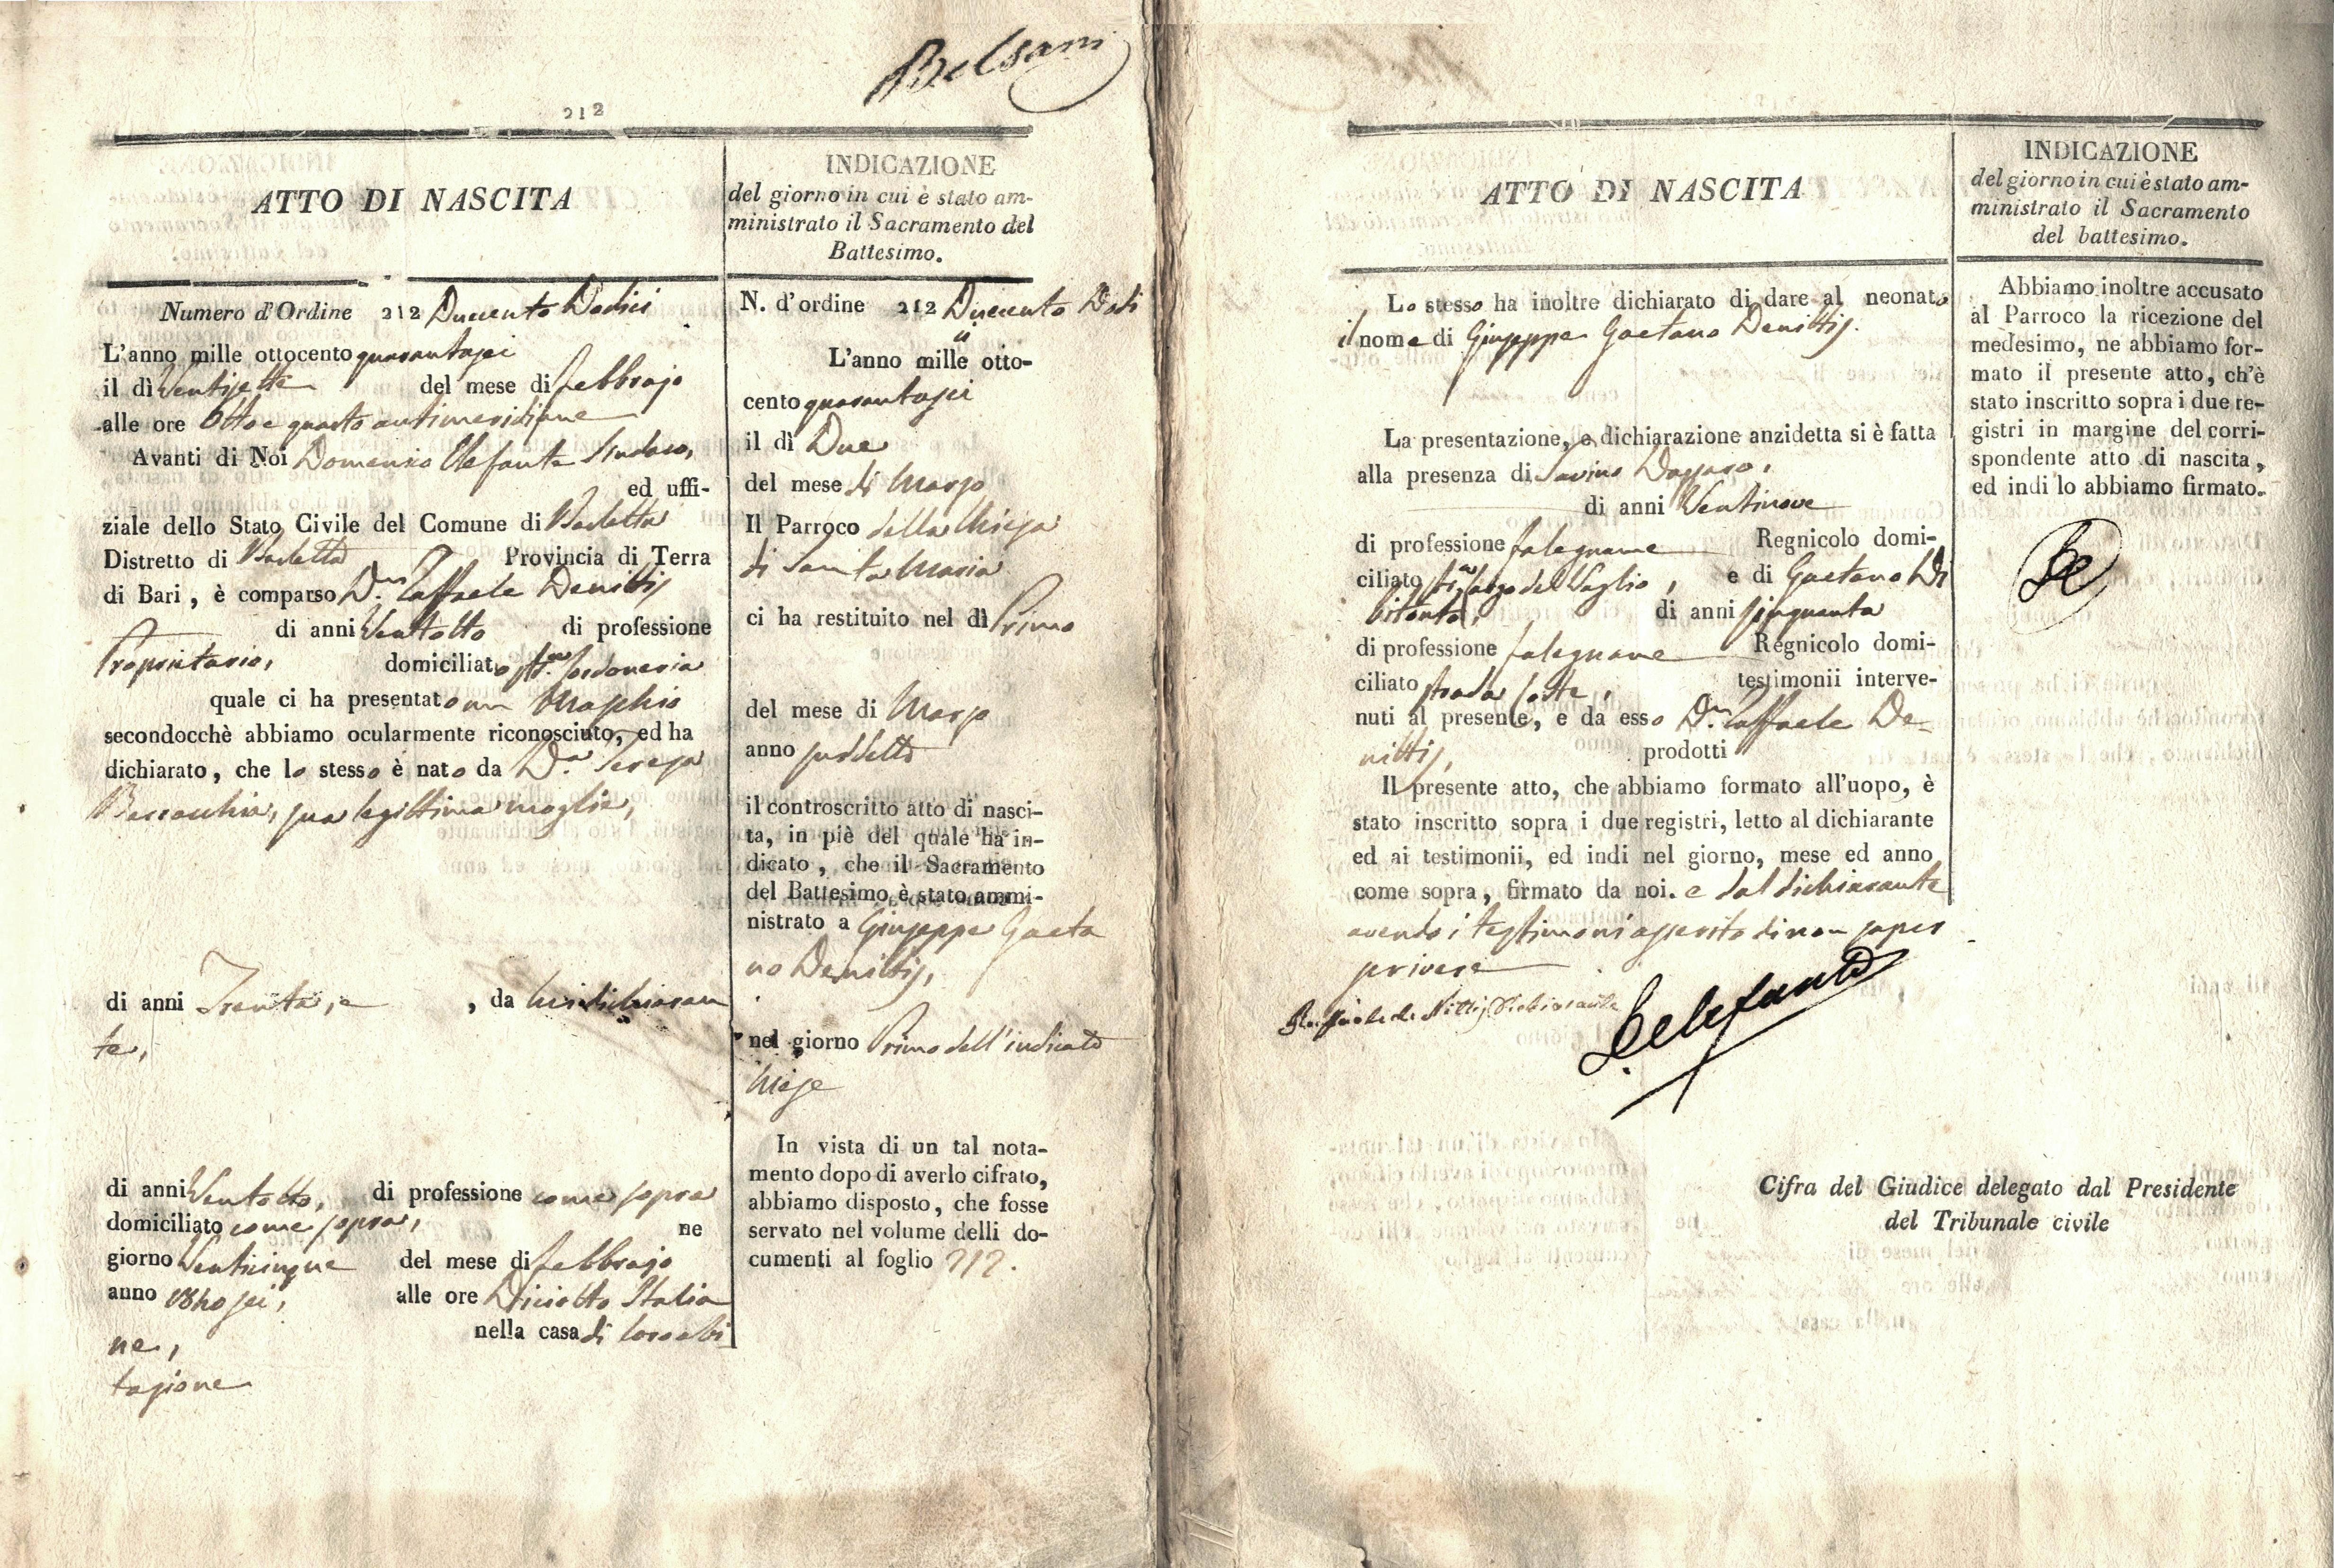 Belsani
212
ATTO DI NASCITA
Numero d'Ordine 212 Duecento Dodici
L'anno mille ottocento quarantasei
il dì Ventisette del mese di febbrajo
alle ore Otto e quarto antimeridiane
Avanti di Noi Domenico Elefante Sindaco,
ed uffi-
ziale dello Stato Civile del Comune di Barletta
Distretto di Barletta Provincia di Terra
di Bari, è comparso D.n Raffaele Denittis
di anni Ventotto di professione
Proprietario, domiciliato st.a Cordoneria
quale ci ha presentato un Maschio
secondocchè abbiamo ocularmente riconosciuto, ed ha
dichiarato, che lo stesso è nato da D.a Teresa
Barracchia, sua legittima moglie,
di anni Trenta, e , da lui dichiaran
te,
di anni Ventotto, di professione come sopra
domiciliato come sopra, ne
giorno Venticinque del mese di febbrajo
anno 1840sei, alle ore Diciotto Italia
ne, nella casa di loro abi
tazione
INDICAZIONE
del giorno in cui è stato am-
ministrato il Sacramento del
Battesimo.
N. d'ordine 212 Duecento Dodi
ci
L'anno mille otto-
cento quarantasei
il dì Due
del mese di Marzo
Il Parroco della Chiesa
di Santa Maria
ci ha restituito nel dì Primo
del mese di Marzo
anno suddetto
il controscritto atto di nasci-
ta, in piè del quale ha in-
dicato, che il Sacramento
del Battesimo è stato ammi-
nistrato a Giuseppe Gaeta
no Denittis,
nel giorno Primo dell'indicato
Mese
In vista di un tal nota-
mento dopo di averlo cifrato,
abbiamo disposto, che fosse
servato nel volume delli do-
cumenti al foglio 212.
ATTO DI NASCITA
Lo stesso ha inoltre dichiarato di dare al neonato
il nome di Giuseppe Gaetano Denittis.
La presentazione, e dichiarazione anzidetta si è fatta
alla presenza di Savino
di anni Ventinove
di professione falegname Regnicolo domi-
ciliato st.a largo del Paglio, e di Gaetano Di
Bitonto, di anni cinquanta
di professione falegname Regnicolo domi-
ciliato strada testimonii interve-
nuti al presente, e da esso D.n Raffaele De-
nittis, prodotti
Il presente atto, che abbiamo formato all'uopo, è
stato inscritto sopra i due registri, letto al dichiarante
ed ai testimonii, ed indi nel giorno, mese ed anno
come sopra, firmato da noi. e dal dichiarante
avendo i testimoni asserito di non saper
scrivere
Raffaele de Nittis Dichiarante
D. Elefante
Cifra del Giudice delegato dal Presidente
del Tribunale civile
INDICAZIONE
del giorno in cui è stato am-
ministrato il Sacramento
del battesimo.
Abbiamo inoltre accusato
al Parroco la ricezione del
medesimo, ne abbiamo for-
mato il presente atto, ch'è
stato inscritto sopra i due re-
gistri in margine del corri-
spondente atto di nascita,
ed indi lo abbiamo firmato.